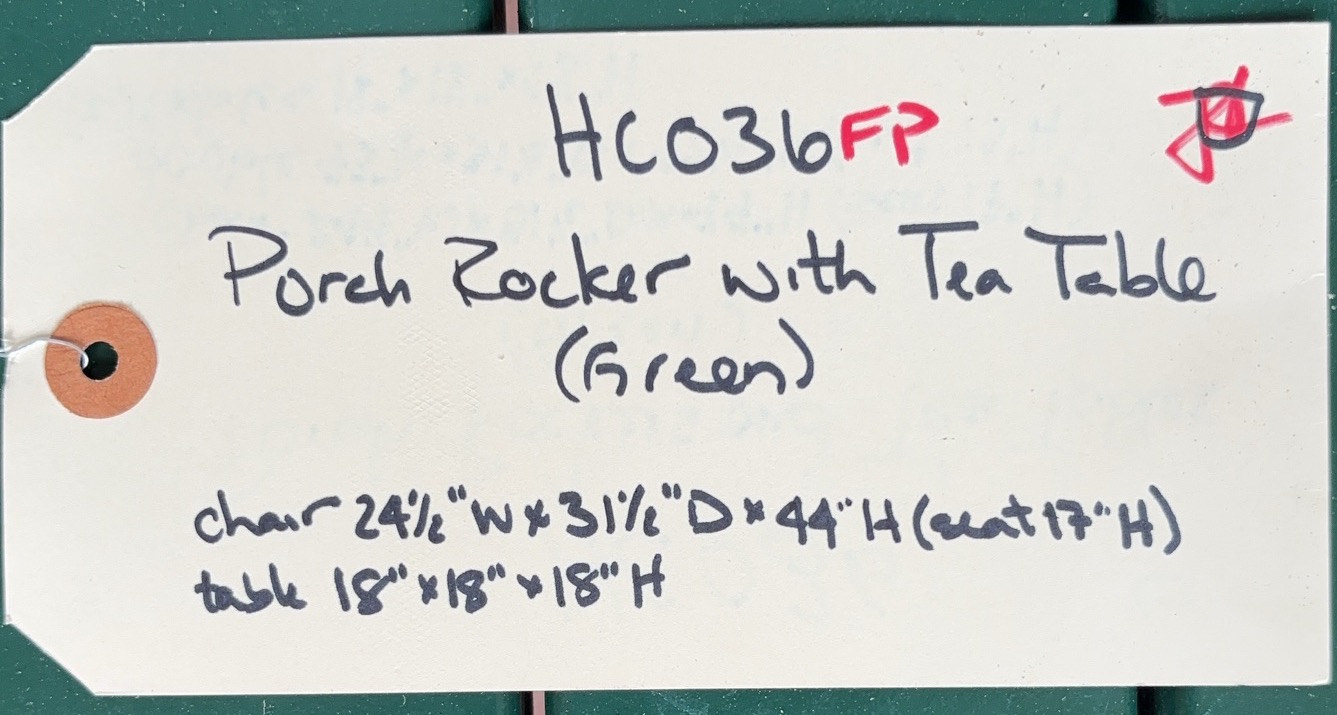 HC036FP
Porch Rocker with Tea Table
(Green)
chair 24½"W x 31½"D x 44"H (seat 17"H)
table 18" x 18" x 18"H